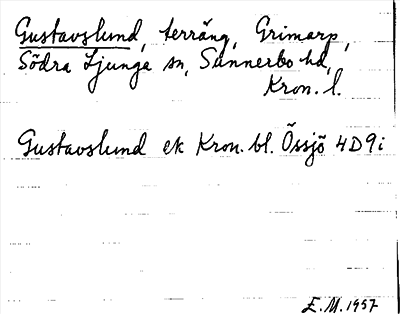 Gustavslund, terräng, Grimarp,
Södra Ljunga sn, Sunnerbo hd,
Kron. l.
Gustavslund ek Kron. bl. Össjö 4D9i
E.M. 1957